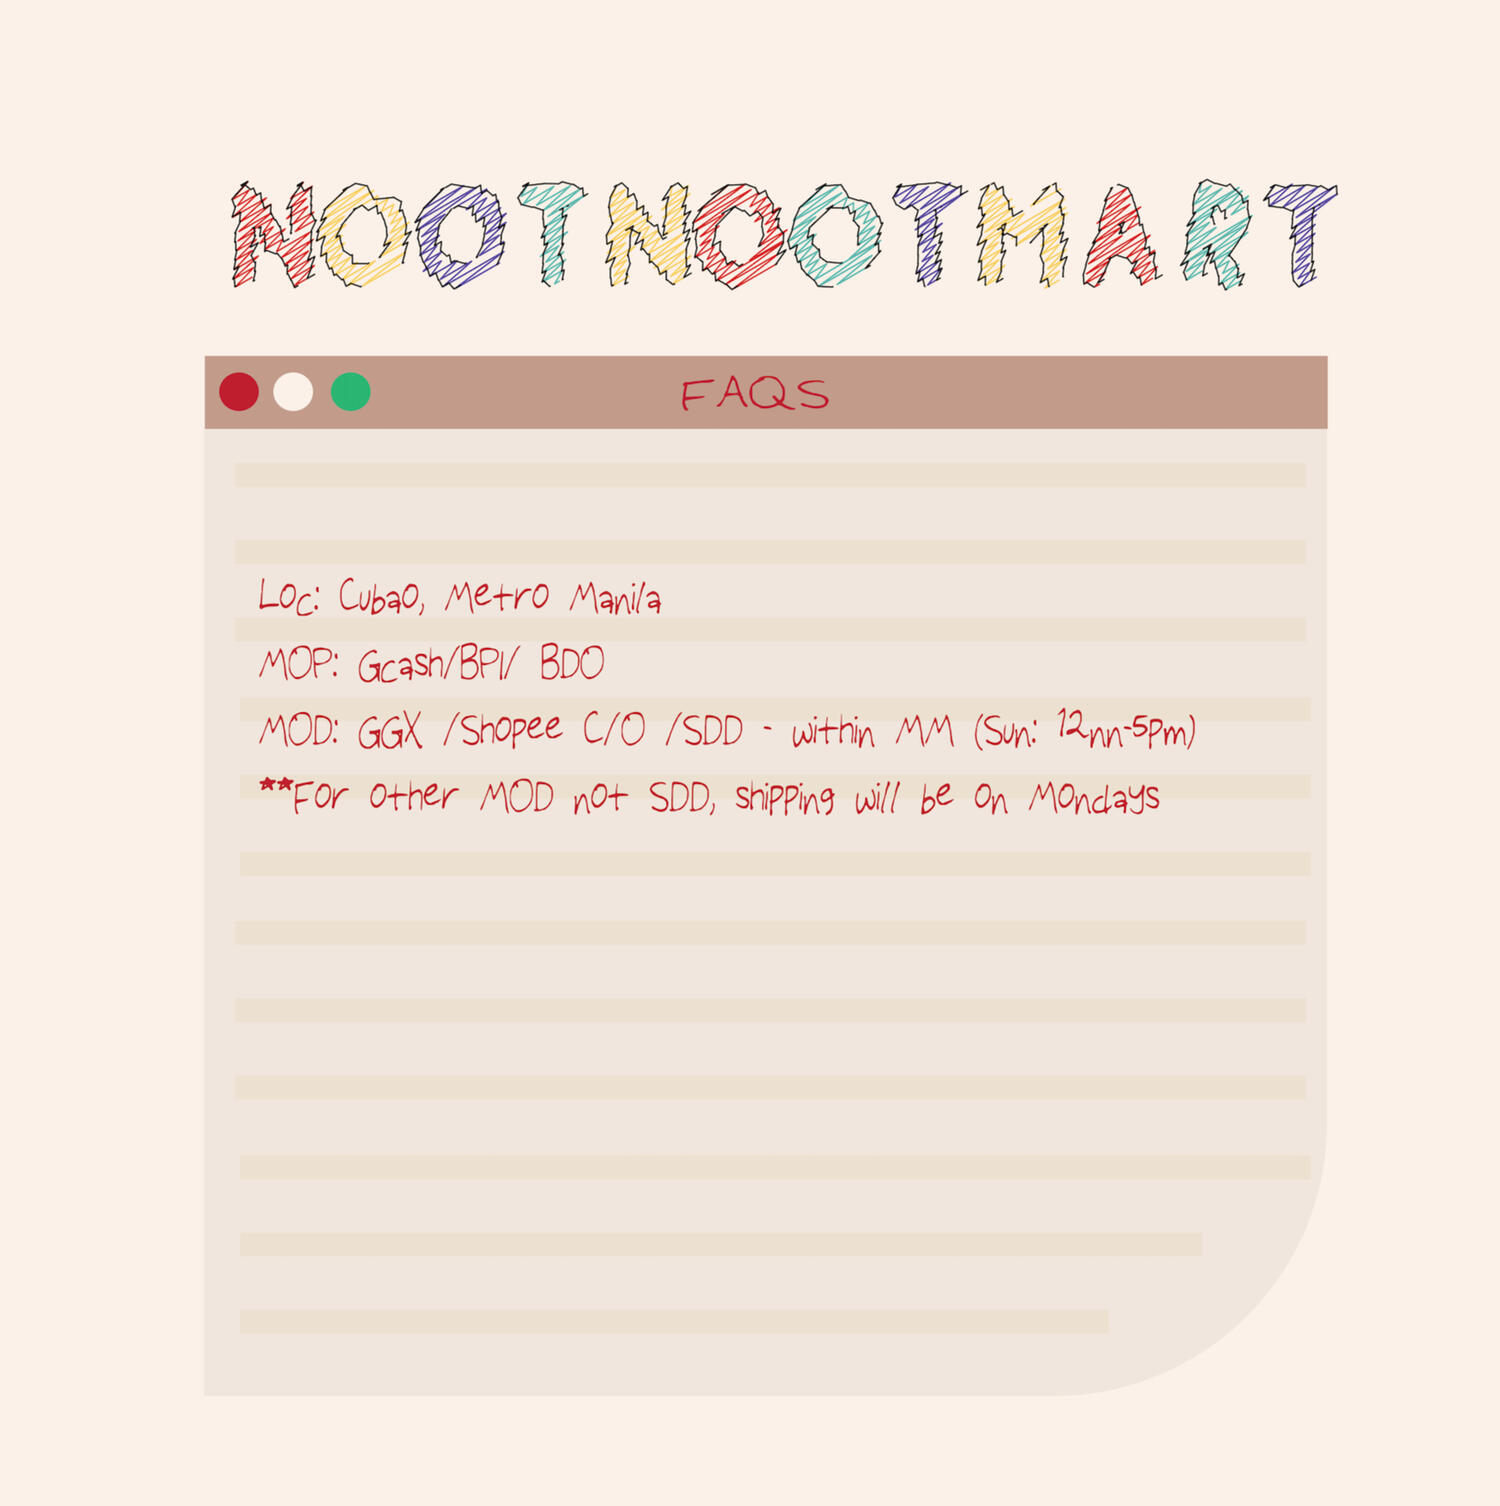 NOOTNOOTMART
FAQS
Loc: Cubao, Metro Manila
MOP: Gcash/BPI/ BDO
MOD: GGX /Shopee C/O /SDD - within MM (Sun: 12nn-5pm)
**For other MOD not SDD, shipping will be on Mondays